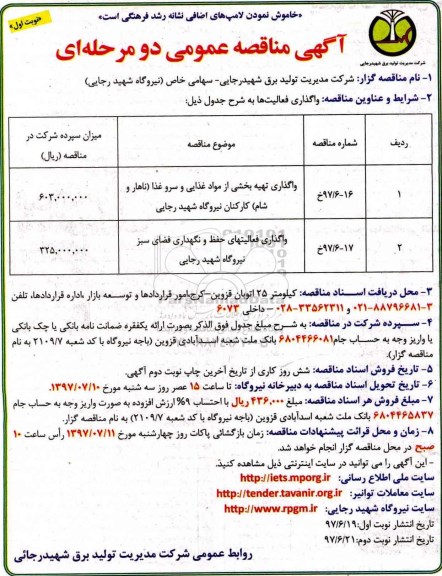 «خاموش نمودن لامپ‌های اضافی نشانه رشد فرهنگی است»
«نوبت اول»
شرکت مدیریت تولید برق شهیدرجایی
آگهی مناقصه عمومی دو مرحله‌ای
۱- نام مناقصه گزار: شرکت مدیریت تولید برق شهیدرجایی- سهامی خاص (نیروگاه شهید رجایی)
۲- شرایط و عناوین مناقصه: واگذاری فعالیت‌ها به شرح جدول ذیل:
ردیف شماره مناقصه موضوع مناقصه میزان سپرده شرکت در مناقصه (ریال)
۱ ۹۷/۶-۱۶خ واگذاری تهیه بخشی از مواد غذایی و سرو غذا (ناهار و شام) کارکنان نیروگاه شهید رجایی ۶۰۳,۰۰۰,۰۰۰
۲ ۹۷/۶-۱۷خ واگذاری فعالیتهای حفظ و نگهداری فضای سبز نیروگاه شهید رجایی ۳۲۵,۰۰۰,۰۰۰
۳- محل دریافت اسناد مناقصه: کیلومتر ۲۵ اتوبان قزوین-کرج،امور قراردادها و توسعه بازار ،اداره قراردادها، تلفن
۳-۸۸۷۹۶۶۸۱-۰۲۱ و ۳۳۵۶۲۳۱۱-۰۲۸ – داخلی ۶۰۷۳
۴- سپرده شرکت در مناقصه: به شرح مبلغ جدول فوق الذکر بصورت ارائه یکفقره ضمانت نامه بانکی یا چک بانکی
یا واریز وجه به حساب جام۶۸۰۴۴۶۶۰۸۱ بانک ملت شعبه اسدآبادی قزوین (باجه نیروگاه با کد شعبه ۲۱۰۹/۷ به نام
مناقصه گزار).
۵- تاریخ فروش اسناد مناقصه: شش روز کاری از تاریخ آخرین چاپ نوبت دوم آگهی.
۶- تاریخ تحویل اسناد مناقصه به دبیرخانه نیروگاه: تا ساعت ۱۵ عصر روز سه شنبه مورخ ۱۳۹۷/۰۷/۱۰.
۷- مبلغ فروش هر اسناد مناقصه: مبلغ ۴۳۶,۰۰۰ ریال با احتساب ۹% ارزش افزوده به صورت واریز وجه به حساب جام
۶۸۰۴۴۶۵۸۳۷ بانک ملت شعبه اسدآبادی قزوین (باجه نیروگاه با کد شعبه ۲۱۰۹/۷) به نام مناقصه گزار.
۸- زمان و محل قرائت پیشنهادات مناقصه: زمان بازگشائی پاکات روز چهارشنبه مورخ ۱۳۹۷/۰۷/۱۱ رأس ساعت ۱۰
صبح در محل مناقصه گزار انجام خواهد شد.
- این آگهی را می توانید در سایت اینترنتی ذیل مشاهده کنید.
سایت ملی اطلاع رسانی: http://iets.mporg.ir
سایت معاملات توانیر: http://tender.tavanir.org.ir
سایت نیروگاه شهید رجایی: http://www.rpgm.ir
تاریخ انتشار نوبت اول:۹۷/۶/۱۹
تاریخ انتشار نوبت دوم:۹۷/۶/۲۱
روابط عمومی شرکت مدیریت تولید برق شهیدرجائی